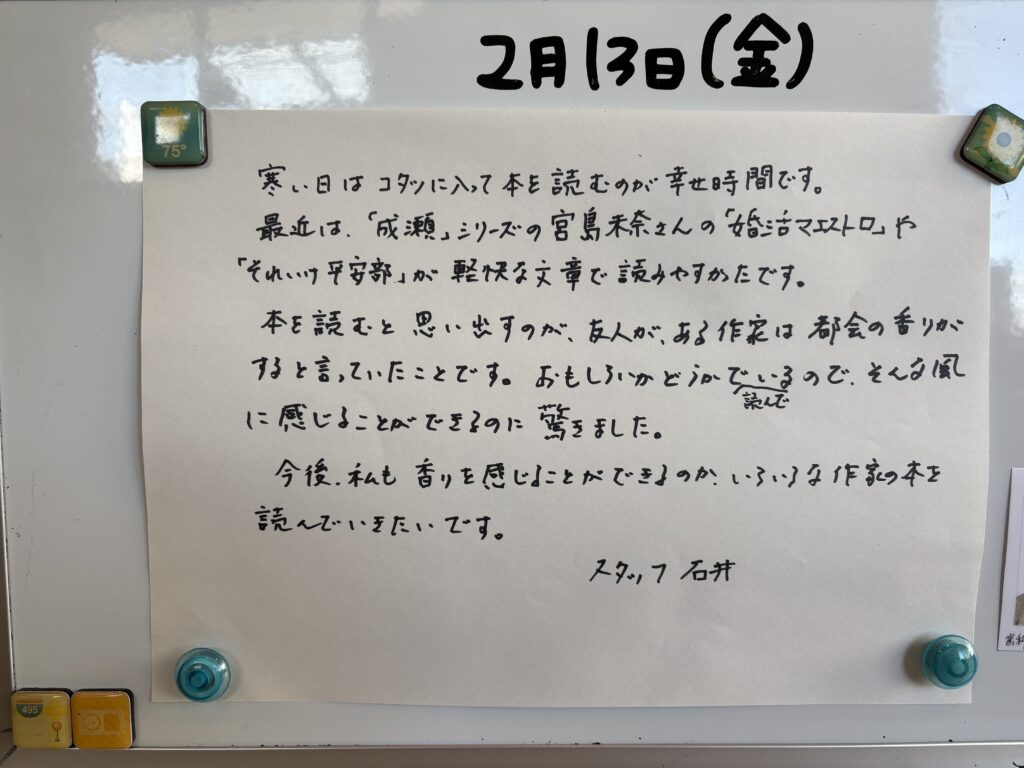 2月13日(金)
75°
寒い日はコタツに入って本を読むのが幸せ時間です。
最近は、「成瀬」シリーズの宮島未奈さんの「婚活マエストロ」や
「それいけ平安部」が軽快な文章で読みやすかたです。
本を読むと思い出すのが、友人が、ある作家は都会の香りが
すると言っていたことです。おもしろいかどうかでいるので、そんな風
読んで
に感じることができるのに驚きました。
今後、私も香りを感じることができるのか、いろいろな作家の本を
読んでいきたいです。
スタッフ 石井
495